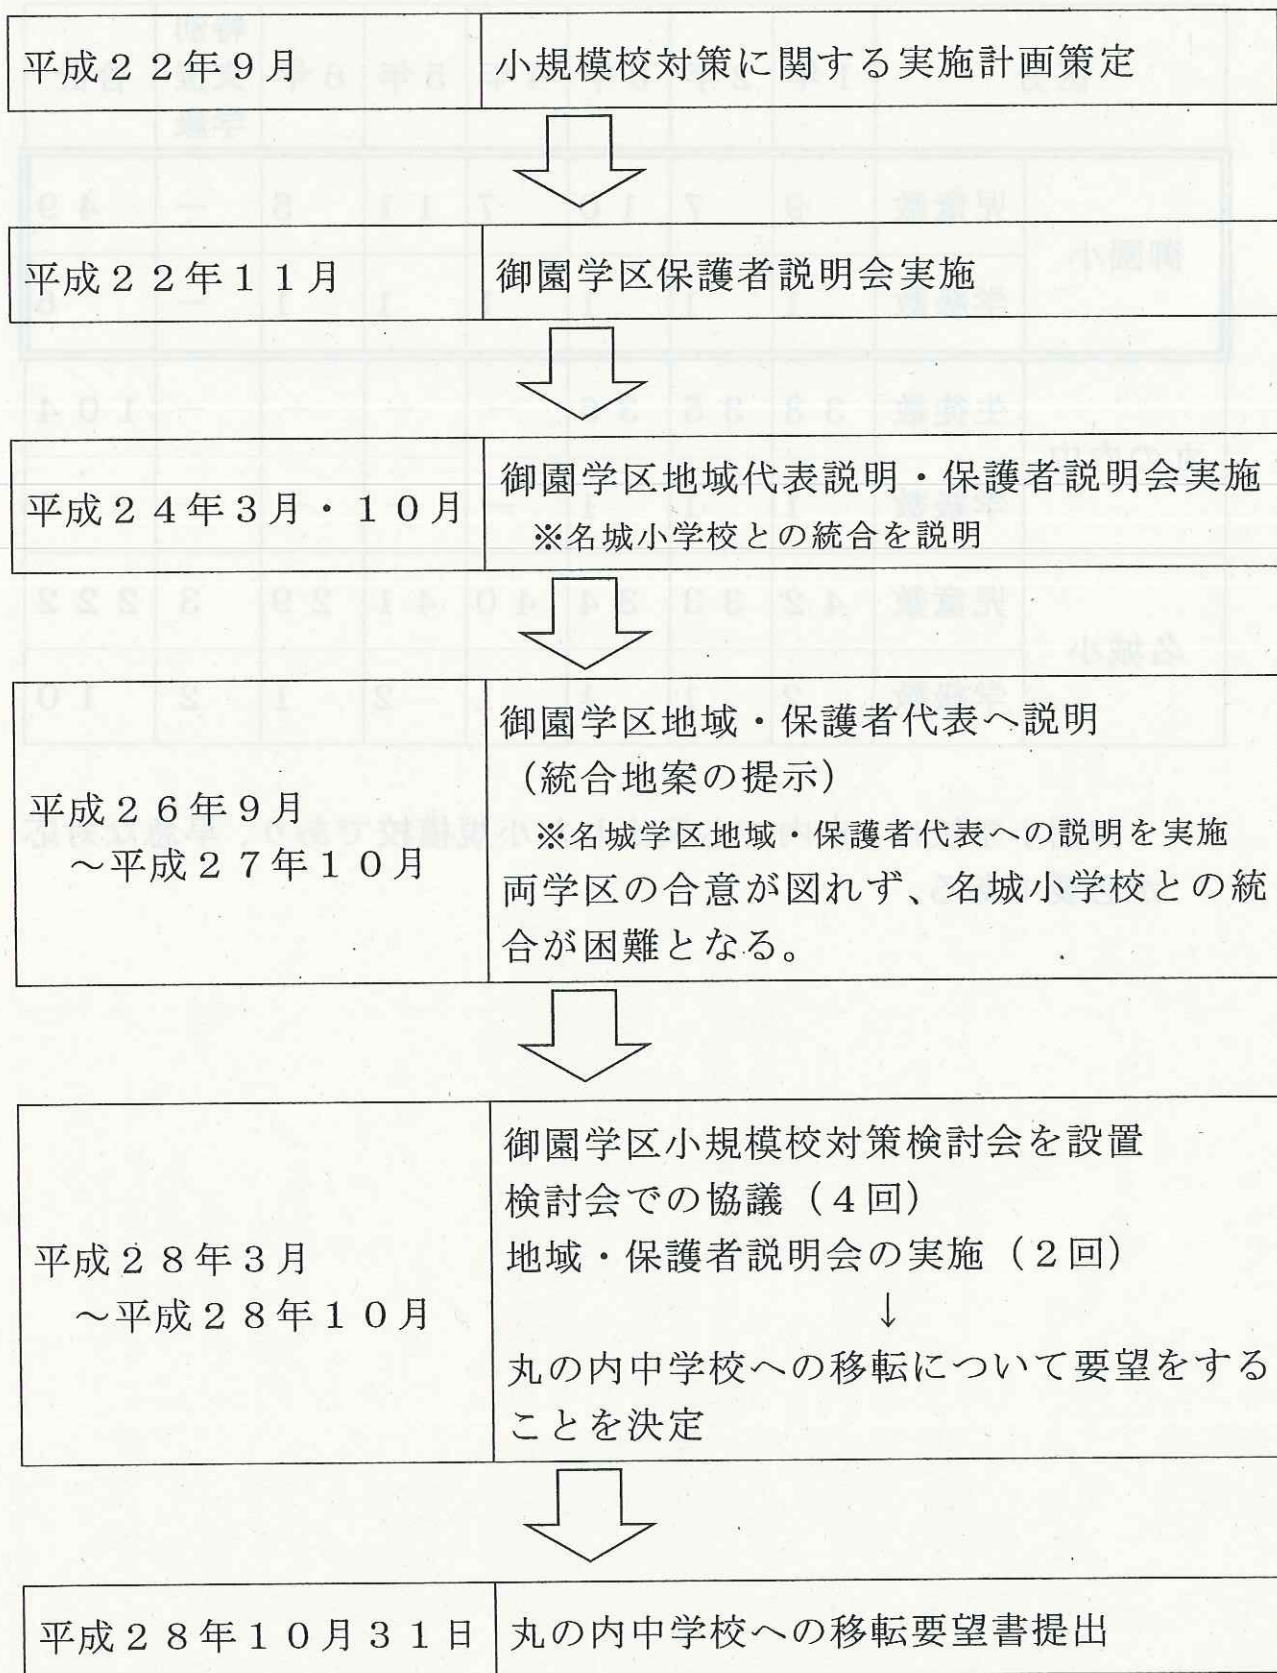 平成２２年９月
小規模校対策に関する実施計画策定
平成２２年１１月
御園学区保護者説明会実施
平成２４年３月・１０月
御園学区地域代表説明・保護者説明会実施
※名城小学校との統合を説明
平成２６年９月
～平成２７年１０月
御園学区地域・保護者代表へ説明
（統合地案の提示）
※名城学区地域・保護者代表への説明を実施
両学区の合意が図れず、名城小学校との統
合が困難となる。
平成２８年３月
～平成２８年１０月
御園学区小規模校対策検討会を設置
検討会での協議（４回）
地域・保護者説明会の実施（２回）
↓
丸の内中学校への移転について要望をする
ことを決定
平成２８年１０月３１日
丸の内中学校への移転要望書提出